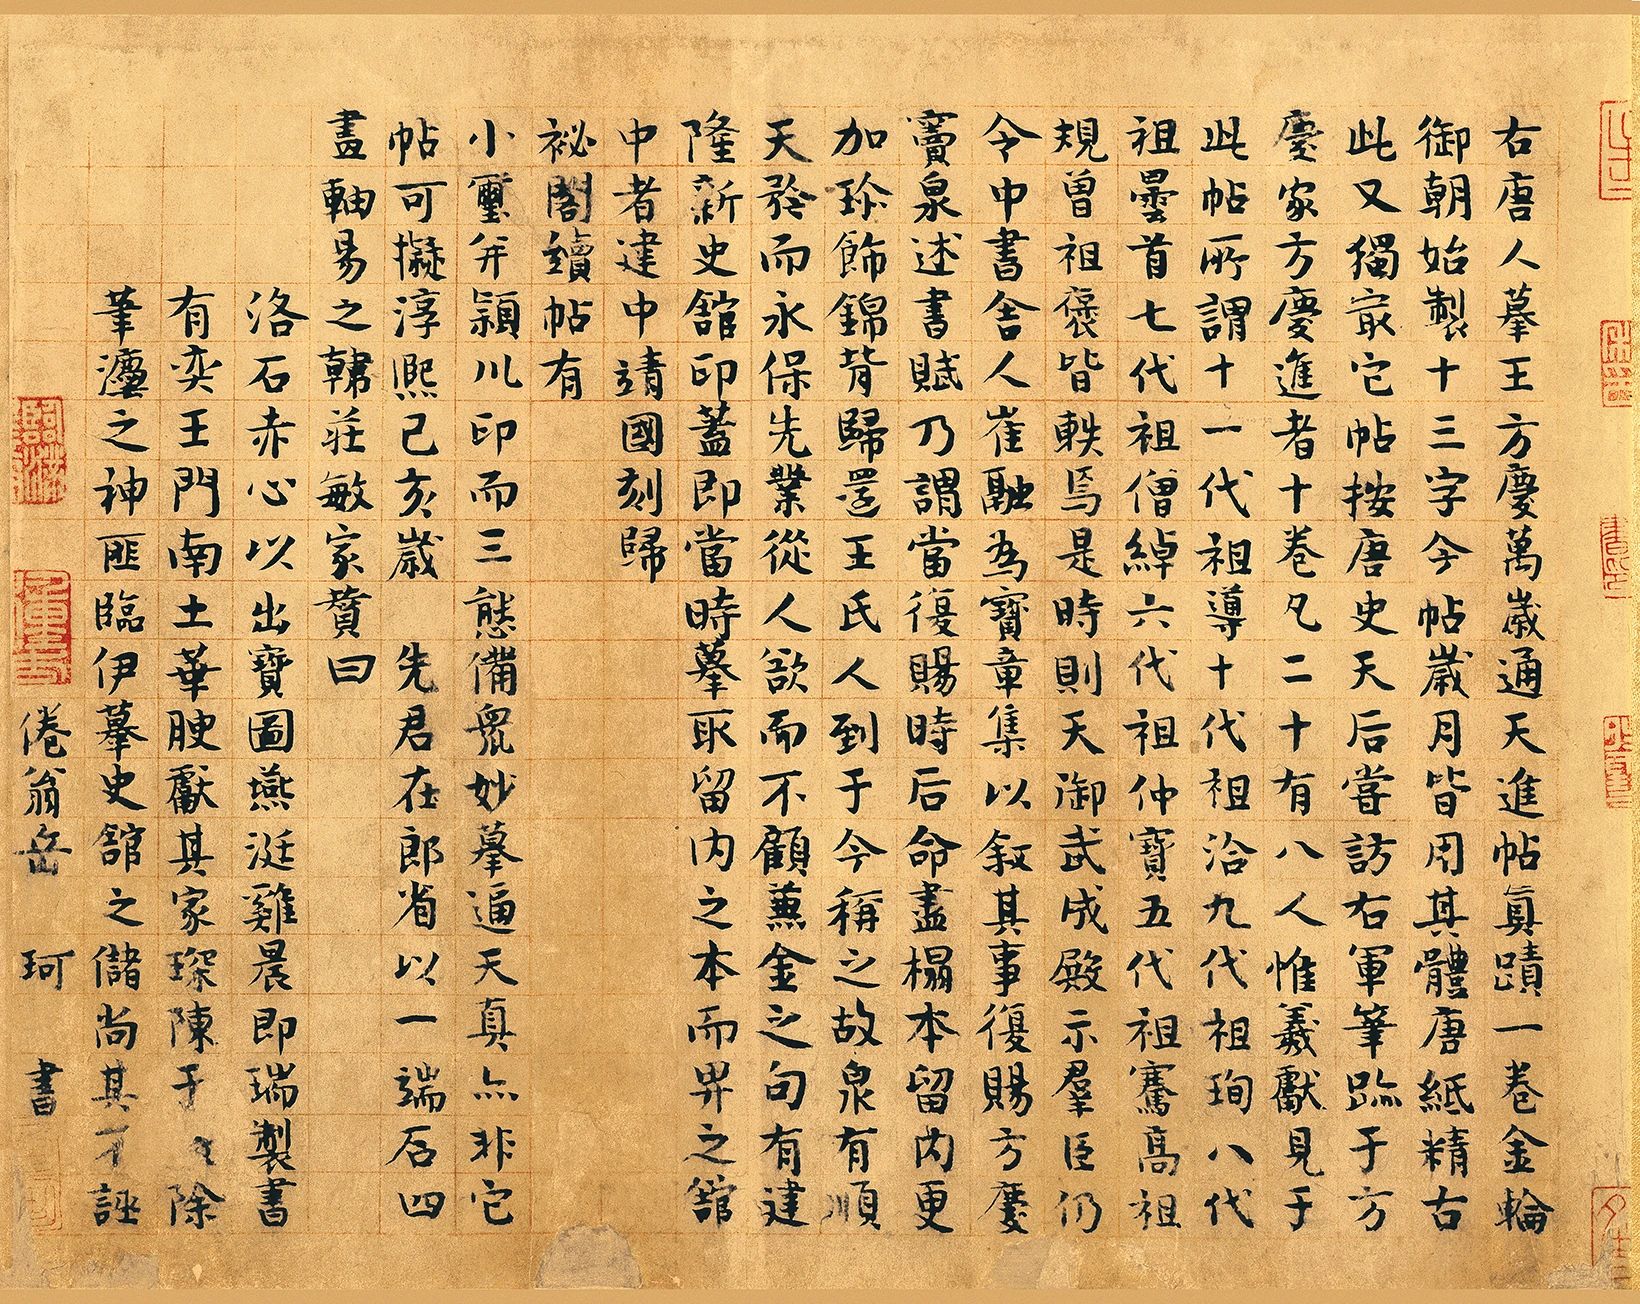 右唐人摹王方慶萬歲通天進帖真蹟一卷金輪
御朝始製十三字今帖歲月皆用其體唐紙精古
此又獨冣它帖按唐史天后嘗訪右軍筆跡于方
慶家方慶進者十卷凡二十有八人惟羲獻見于
此帖所謂十一代祖導十代祖洽九代祖珣八代
祖曇首七代祖僧綽六代祖仲寶五代祖騫高祖
規曾祖褒皆軼焉是時則天御武成殿示羣臣仍
令中書舍人崔融為寶章集以敘其事復賜方慶
竇泉述書賦乃謂當復賜時后命盡榻本留內更
加珎飾錦背歸還王氏人到于今稱之故泉有順
天矜而永保先業從人欲而不顧蒹金之句有建
隆新史舘印蓋即當時摹取留內之本而畀之舘
中者建中靖國刻歸
祕閣續帖有
小璽并潁川印而三態備眾妙摹逼天真亦非它
帖可擬淳熙己亥歲 先君在郎省以一端石四
畫軸易之韓莊敏家贊曰
洛石赤心以出寶圖燕涎雞晨即瑞製書
有奕王門南土華腴獻其家琛陳于 除
筆瀍之神匪臨伊摹史舘之儲尚其 誣
倦翁岳 珂 書